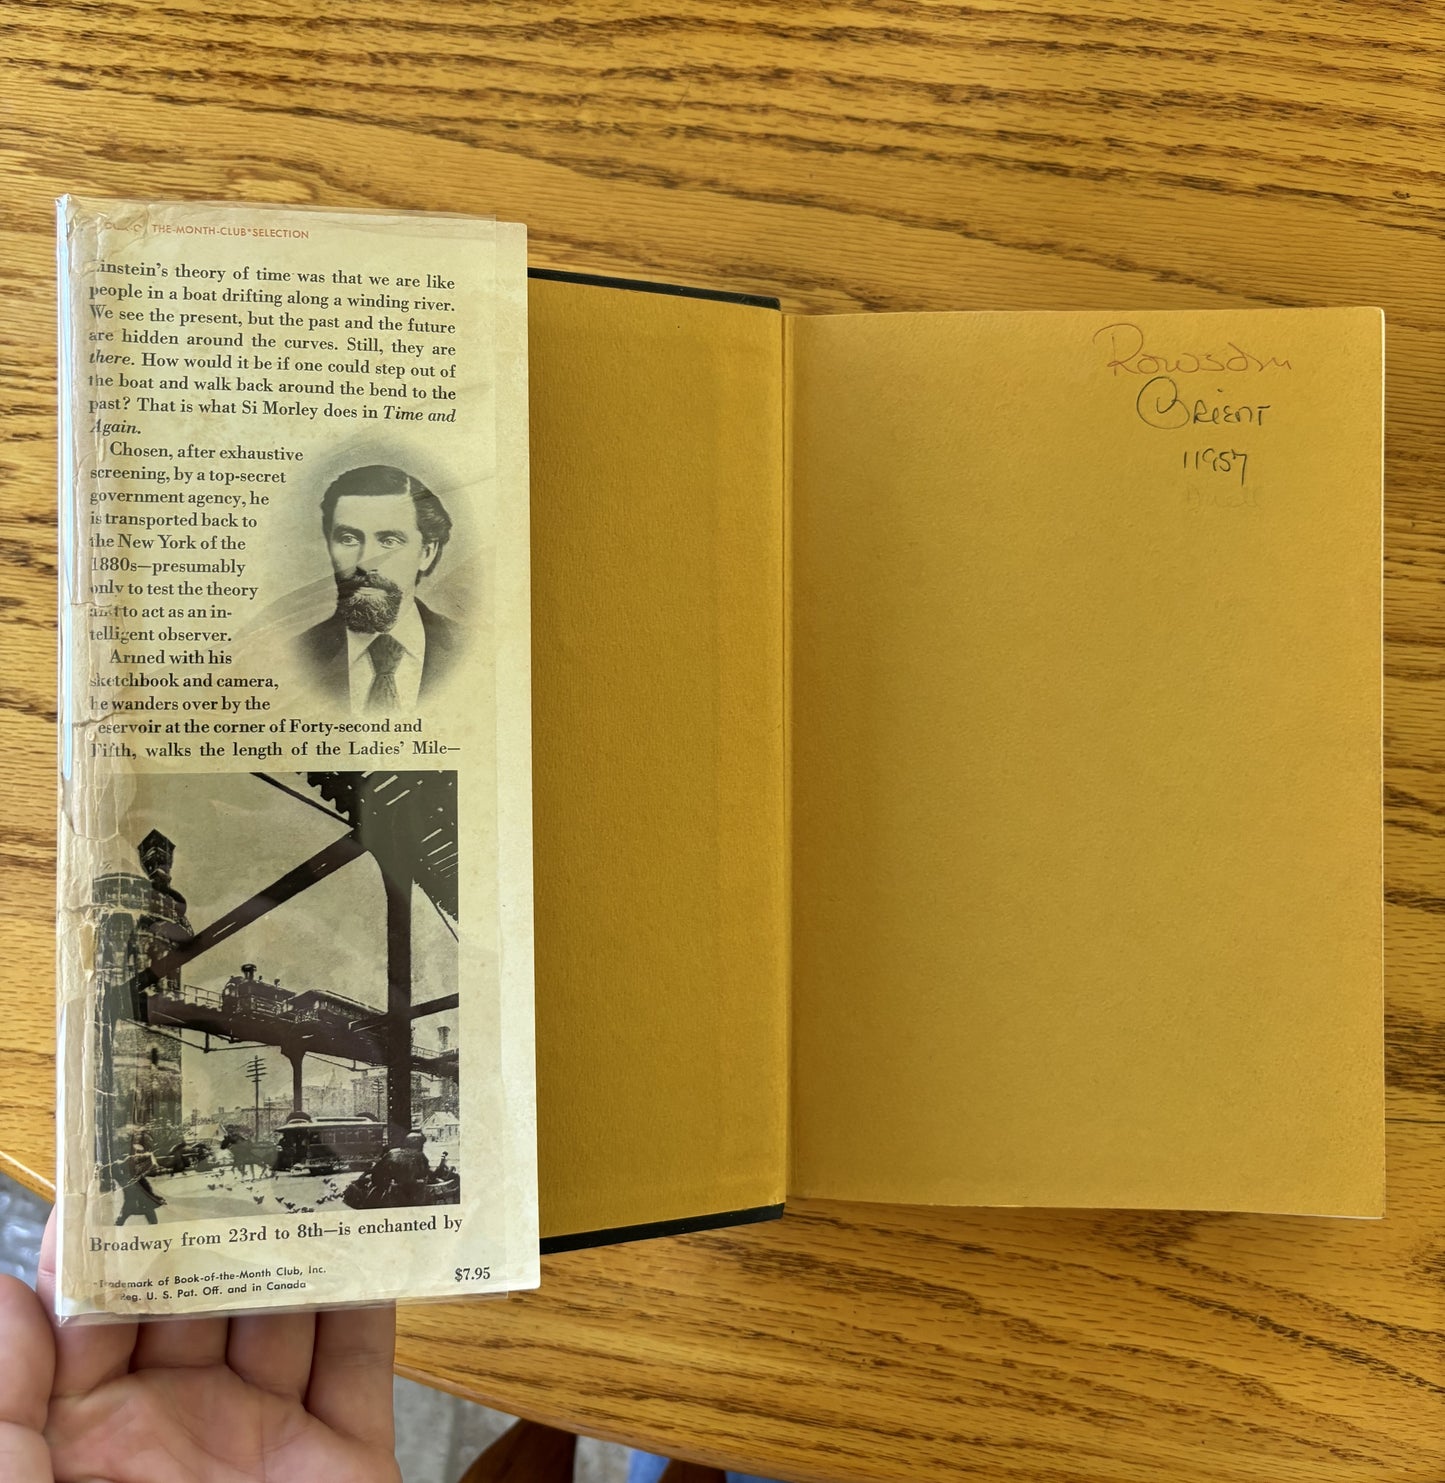 THE-MONTH-CLUB*SELECTION
Einstein's theory of time was that we are like
people in a boat drifting along a winding river.
We see the present, but the past and the future
are hidden around the curves. Still, they are
there. How would it be if one could step out of
the boat and walk back around the bend to the
past? That is what Si Morley does in Time and
Again.
Chosen, after exhaustive
screening, by a top-secret
government agency, he
is transported back to
the New York of the
1880s—presumably
only to test the theory
and to act as an in-
telligent observer.
Armed with his
sketchbook and camera,
he wanders over by the
reservoir at the corner of Forty-second and
Fifth, walks the length of the Ladies' Mile—
Broadway from 23rd to 8th—is enchanted by
*Trademark of Book-of-the-Month Club, Inc.
Reg. U. S. Pat. Off. and in Canada
$7.95
Rowsom
Orient
11957